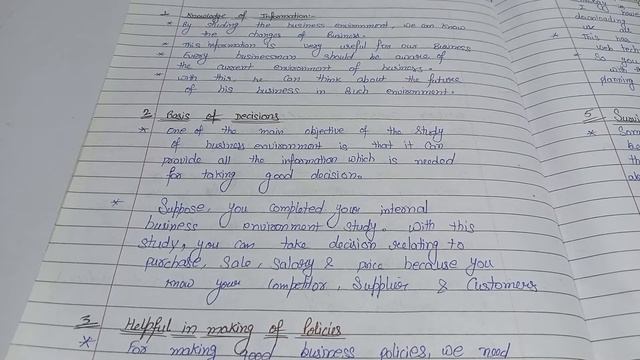 1. Knowledge of Information:-
* By studying the business environment, we can know
the changes of Business.
* This information is very useful for our Business
* Every businessman should be aware of
the current environment of business.
* with this, he can think about the future
of his business in such environment.
2 Basis of Decisions
* One of the main objective of the study
of business environment is that it can
provide all the information which is needed
for taking good decision.
* Suppose, you completed your internal
business environment study. with this
study, you can take decision relating to
purchase, Sale, Salary & price because you
know your competitor, Supplier & Customers
3 Helpful in making of Policies
* For making good business policies, we need
downloading
we all
* This has
web tech
* So you
with
planning
5
*